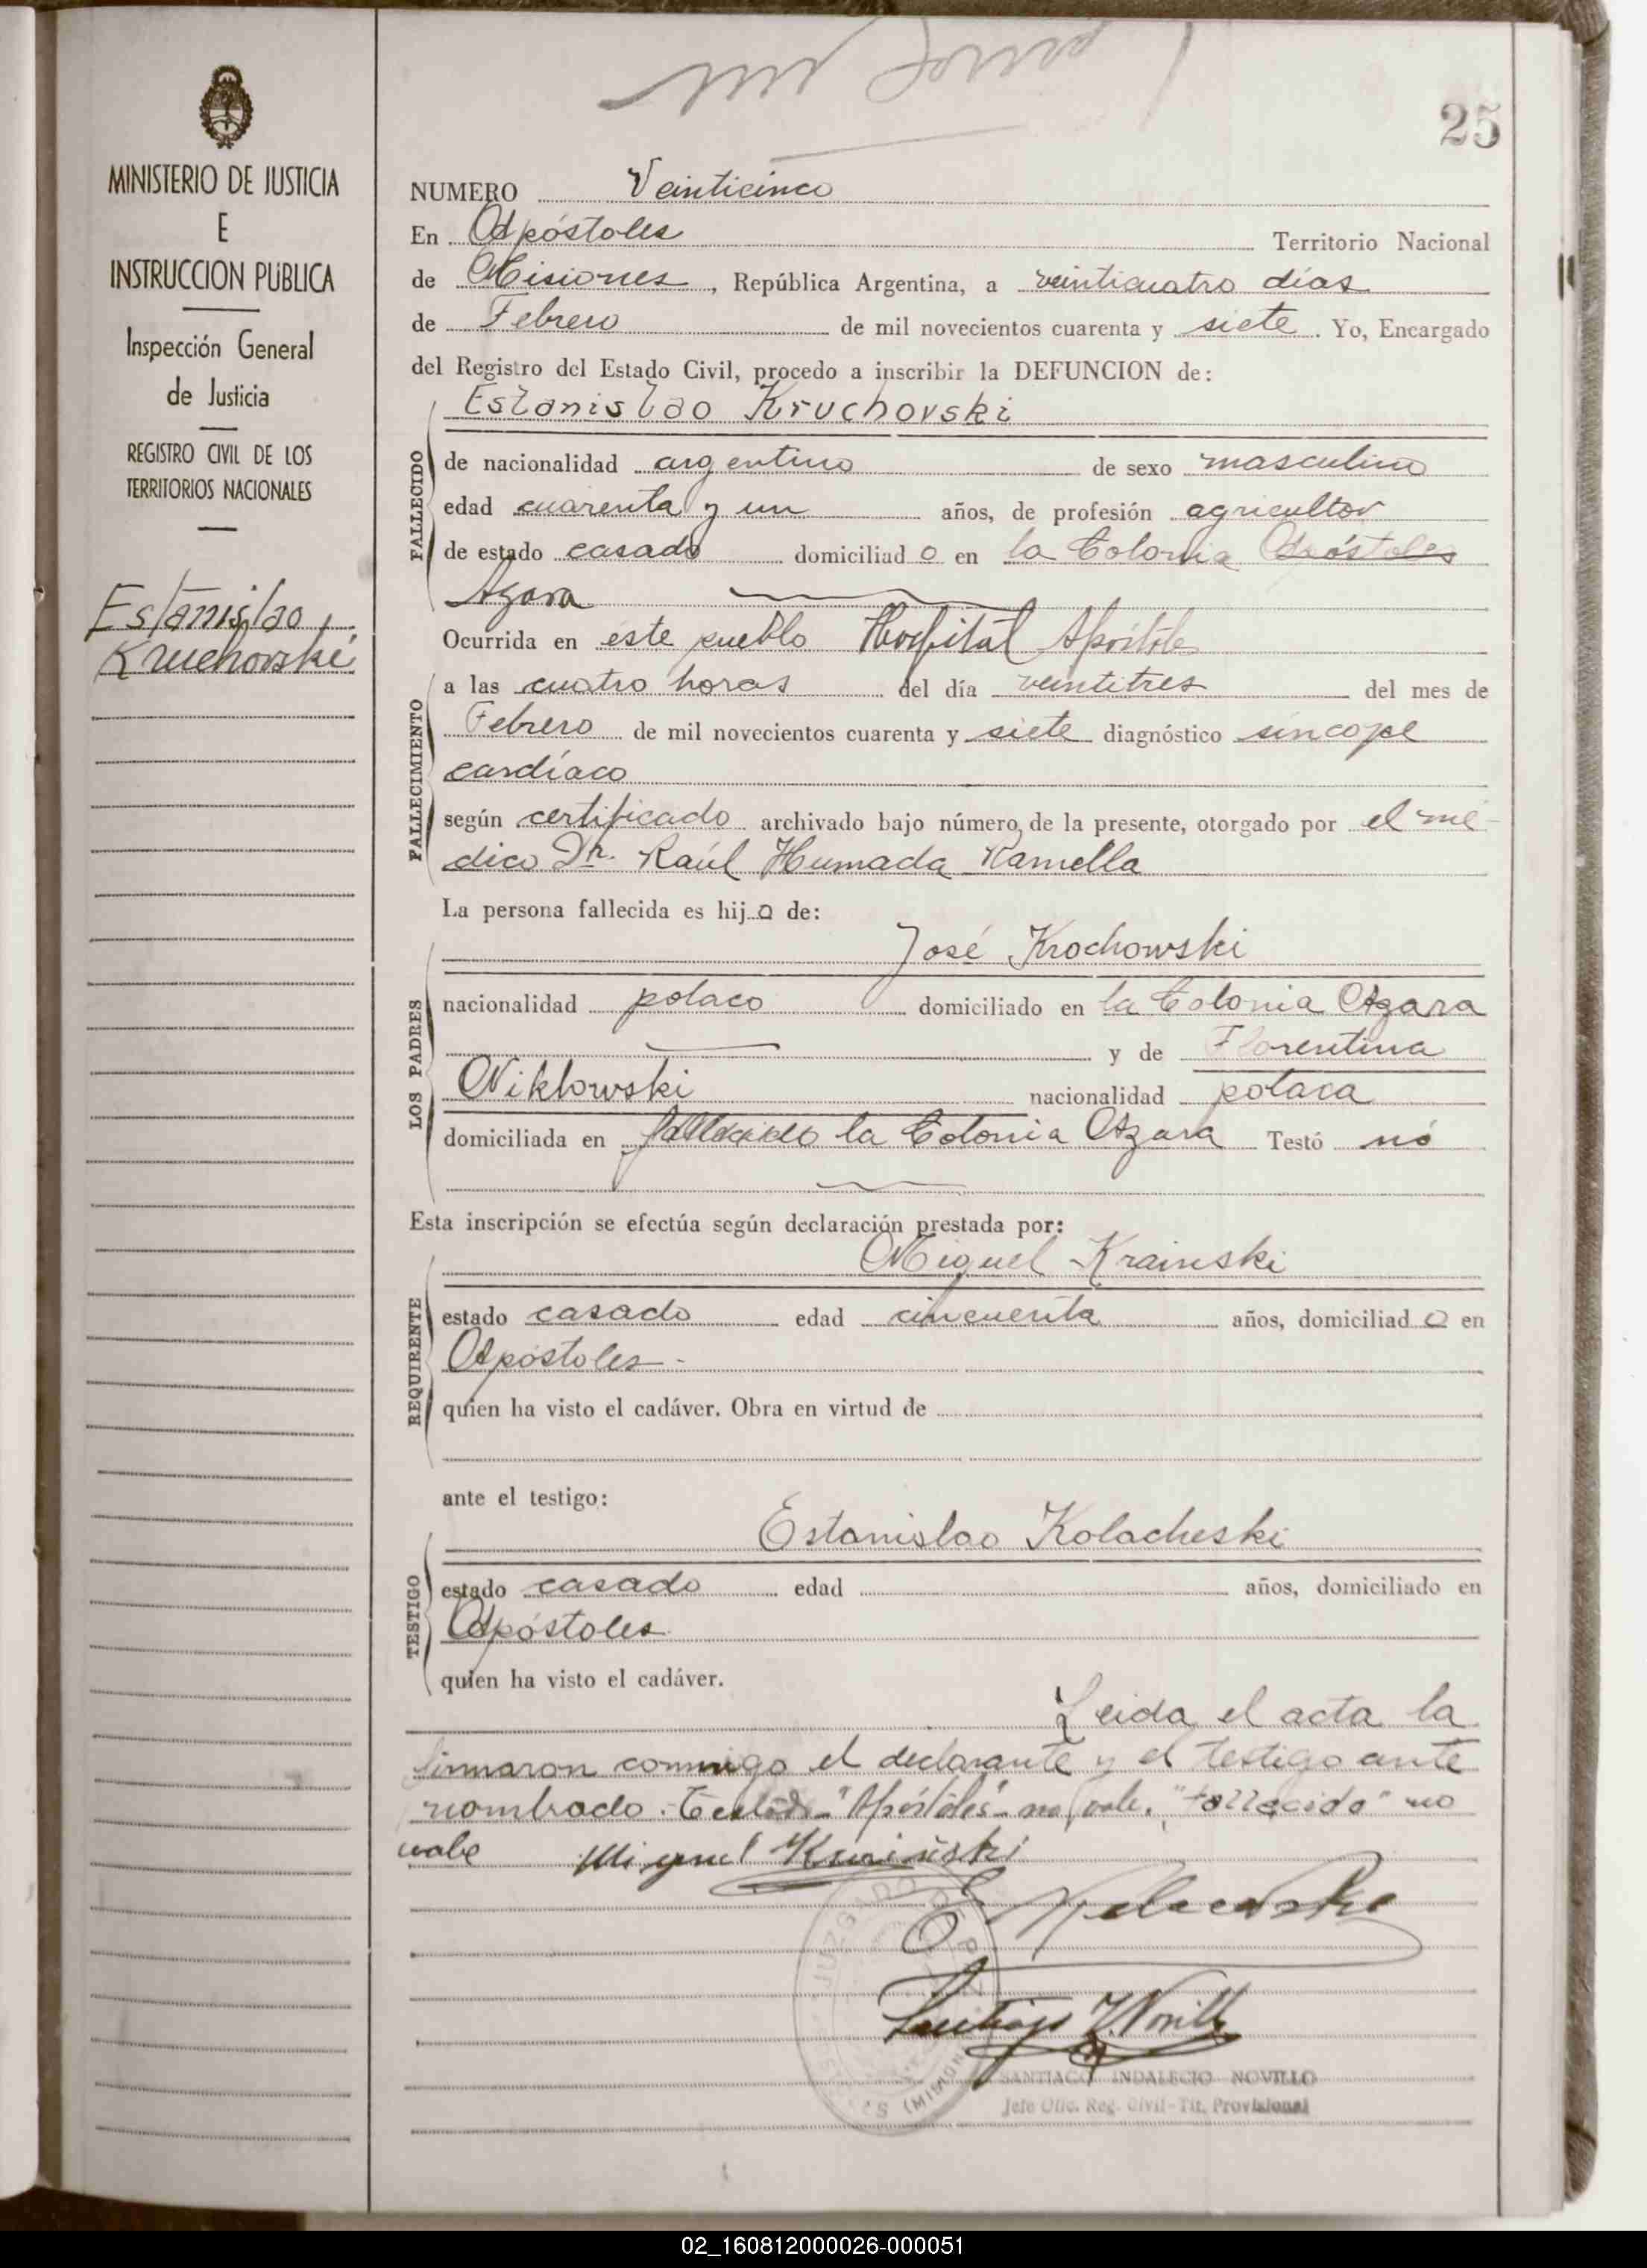 25
MINISTERIO DE JUSTICIA
E
INSTRUCCION PUBLICA
Inspección General
de Justicia
REGISTRO CIVIL DE LOS
TERRITORIOS NACIONALES
Estanislao
Kruchovski
NUMERO Veinticinco
En Apóstoles Territorio Nacional
de Misiones, República Argentina, a veinticuatro días
de Febrero de mil novecientos cuarenta y siete. Yo, Encargado
del Registro del Estado Civil, procedo a inscribir la DEFUNCION de:
Estanislao Kruchovski
FALLECIDO
de nacionalidad argentino de sexo masculino
edad cuarenta y un años, de profesión agricultor
de estado casado domiciliado en la Colonia Apóstoles
Azara
Ocurrida en este pueblo Hospital Apóstoles
FALLECIMIENTO
a las cuatro horas del día veintitres del mes de
Febrero de mil novecientos cuarenta y siete diagnóstico síncope
cardíaco
según certificado archivado bajo número de la presente, otorgado por el mé-
dico Dr. Raúl Humada Ramella
La persona fallecida es hijo de:
LOS PADRES
José Krochowski
nacionalidad polaco domiciliado en la Colonia Azara
y de Florentina
Niklowski nacionalidad polaca
domiciliada en fallecido la Colonia Azara Testó nó
Esta inscripción se efectúa según declaración prestada por:
REQUIRENTE
Miguel Krainski
estado casado edad cincuenta años, domiciliado en
Apóstoles-
quien ha visto el cadáver. Obra en virtud de
ante el testigo:
TESTIGO
Estanislao Kolacheski
estado casado edad años, domiciliado en
Apóstoles
quien ha visto el cadáver.
Leida el acta la
firmaron conmigo el declarante y el testigo ante
nombrado. Testado "Apóstoles" no vale. "fallecido" no
vale Miguel Krainski
JUZGADO DE PAZ
(MISIONES)
SANTIAGO INDALECIO NOVILLO
Jefe Ofic. Reg. Civil-Tit. Provisional
02_160812000026-000051